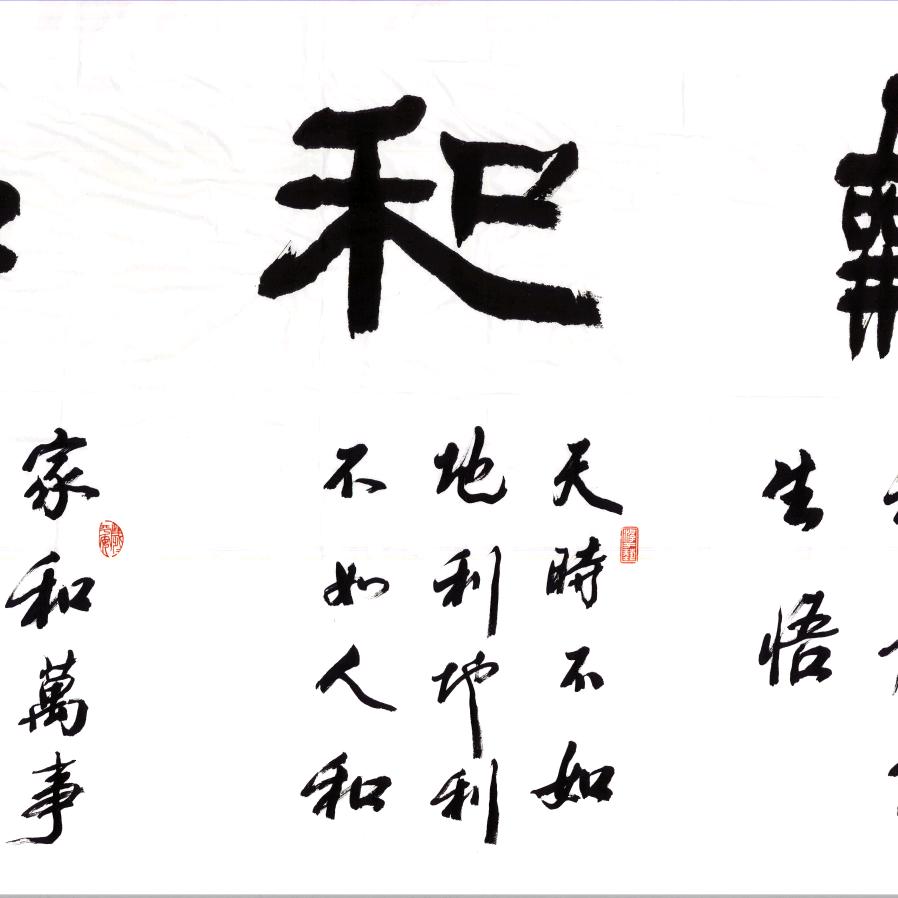 和
生悟
天時不如
地利地利
不如人和
家和萬事